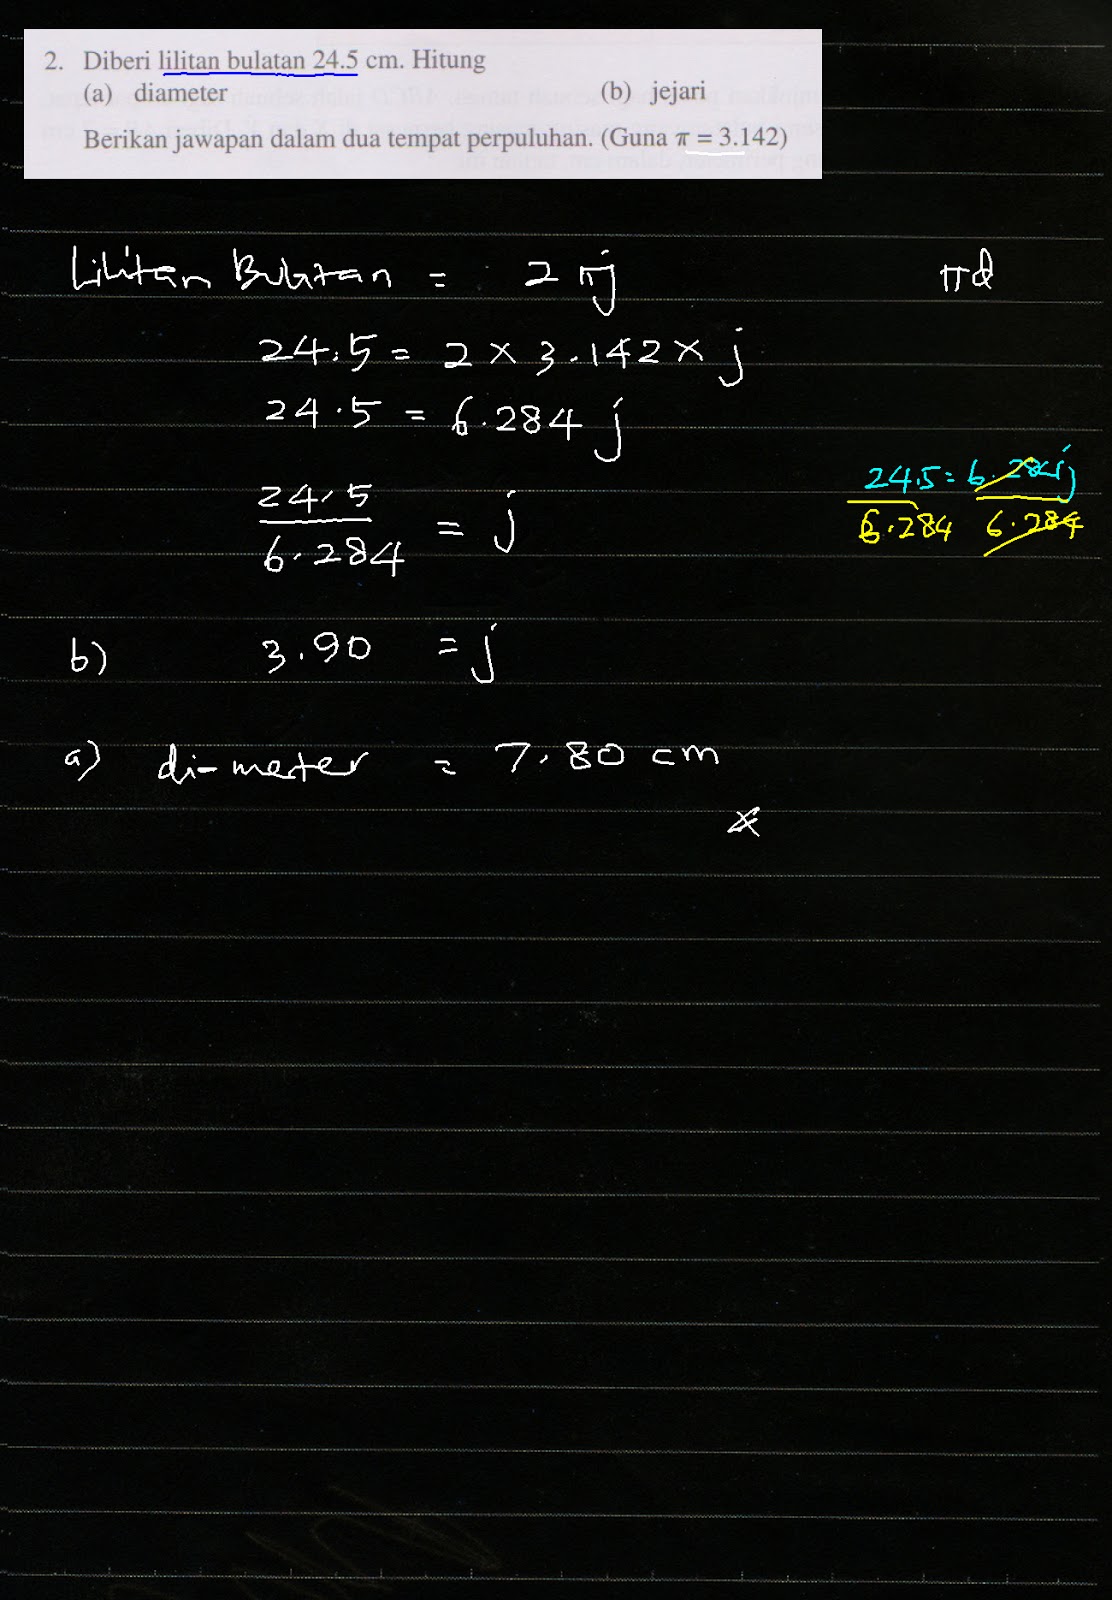 2. Diberi lilitan bulatan 24.5 cm. Hitung
(a) diameter (b) jejari
Berikan jawapan dalam dua tempat perpuluhan. (Guna π = 3.142)
Lilitan Bulatan = 2 πj πd
24.5 = 2 × 3.142 × j
24.5 = 6.284 j
24.5 = 6.284j
6.284 6.284
24.5
6.284 = j
b) 3.90 = j
a) diameter = 7.80 cm